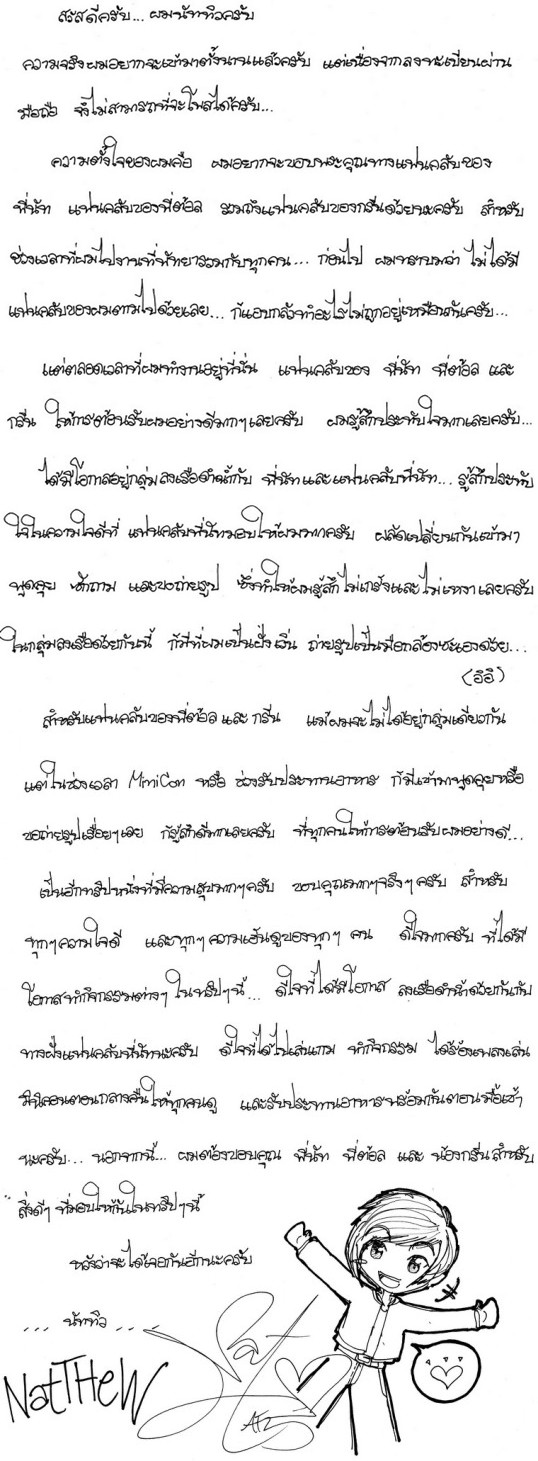 สวัสดีครับ... ผมนัททิวครับ
ความจริงผมอยากจะเข้ามาตั้งนานแล้วครับ แต่เนื่องจากลงทะเบียนผ่าน
มือถือ จึงไม่สามารถที่จะโพสได้ครับ...
ความตั้งใจของผมคือ ผมอยากจะขอบพระคุณทางแฟนคลับของ
พี่นัท แฟนคลับของพี่ต้อล รวมถึงแฟนคลับของกรีนด้วยนะครับ สำหรับ
ช่วงเวลาที่ผมไปงานที่พัทยารวมกับทุกคน... ก่อนไป ผมทราบมาว่า ไม่ได้มี
แฟนคลับของผมตามไปด้วยเลย... ก็แอบกลัวทำอะไรไม่ถูกอยู่เหมือนกันครับ...
แต่ตลอดเวลาที่ผมทำงานอยู่ที่นั่น แฟนคลับของ พี่นัท พี่ต้อล และ
กรีน ให้การต้อนรับผมอย่างดีมากๆเลยครับ ผมรู้สึกประทับใจมากเลยครับ...
ได้มีโอกาสอยู่กลุ่มลงเรือดำน้ำกับ พี่นัทและแฟนคลับพี่นัท... รู้สึกประทับ
ใจในความใจดีที่ แฟนคลับพี่นัทมอบให้ผมมากครับ ผลัดเปลี่ยนกันเข้ามา
พูดคุย ทักถาม และขอถ่ายรูป ซึ่งทำให้ผมรู้สึกไม่เกร็งและไม่เหงาเลยครับ
ในกลุ่มลงเรือด้วยกันนี้ ก็มีที่ผมเป็นฝั่งเว็น ถ่ายรูปเป็นมือกล้องซะเองด้วย...
(อิอิ)
สำหรับแฟนคลับของพี่ต้อล และ กรีน แม้ผมจะไม่ได้อยู่กลุ่มเดียวกัน
แต่ในช่วงเวลา MiniCon หรือ ช่วงรับประทานอาหาร ก็มีเข้ามาพูดคุยหรือ
ขอถ่ายรูปเรื่อยๆเลย ก็รู้สึกดีมากเลยครับ ที่ทุกคนให้การต้อนรับผมอย่างดี...
เป็นอีกทริปหนึ่งที่มีความสุขมากๆครับ ขอบคุณมากๆจริงๆครับ สำหรับ
ทุกๆความใจดี และทุกๆความเอ็นดูของทุกๆ คน ดีใจมากครับ ที่ได้มี
โอกาสทำกิจกรรมต่างๆ ในทริปๆนี้... ดีใจที่ได้มีโอกาส ลงเรือดำน้ำด้วยกันกับ
ทางฝั่งแฟนคลับพี่นัทนะครับ ดีใจที่ได้ไปเล่นเกม ทำกิจกรรม ได้ร้องเพลงเล่น
มินิคอนตอนกลางคืนให้ทุกคนดู และรับประทานอาหารพร้อมกันตอนมื้อเช้า
นะครับ... นอกจากนี้... ผมต้องขอบคุณ พี่นัท พี่ต้อล และ น้องกรีนสำหรับ
สิ่งดีๆ ที่มอบให้กันในทริปๆนี้
หวังว่าจะได้เจอกันอีกนะครับ
... นัททิว ...
NatTHeW
AF2